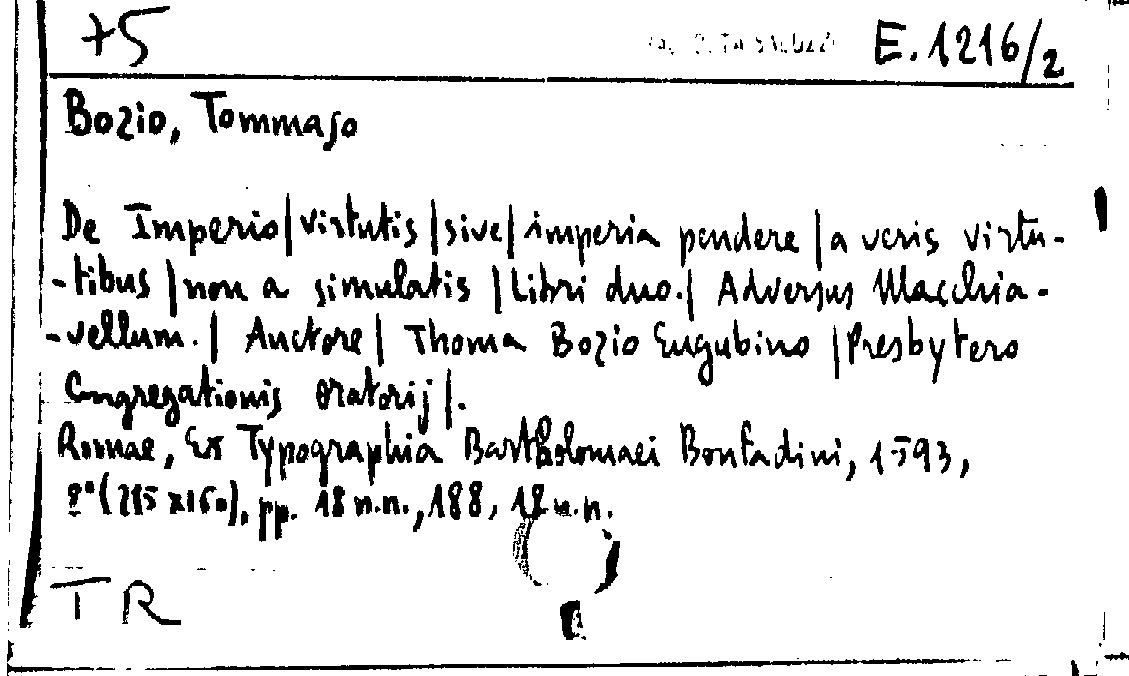 +5 E.1216/2
Bozio, Tommaso
De Imperio|virtutis|sive|imperia pendere|a veris virtu-
-tibus|non a simulatis|Libri duo.|Adversus Macchia-
-vellum.|Auctore|Thoma Bozio Eugubino|Presbytero
Congregationis Oratorij|.
Romae, Ex Typographia Bartholomaei Bonfadini, 1593,
8°(215x160), pp. 18 n.n., 188, 12 n.n.
TR